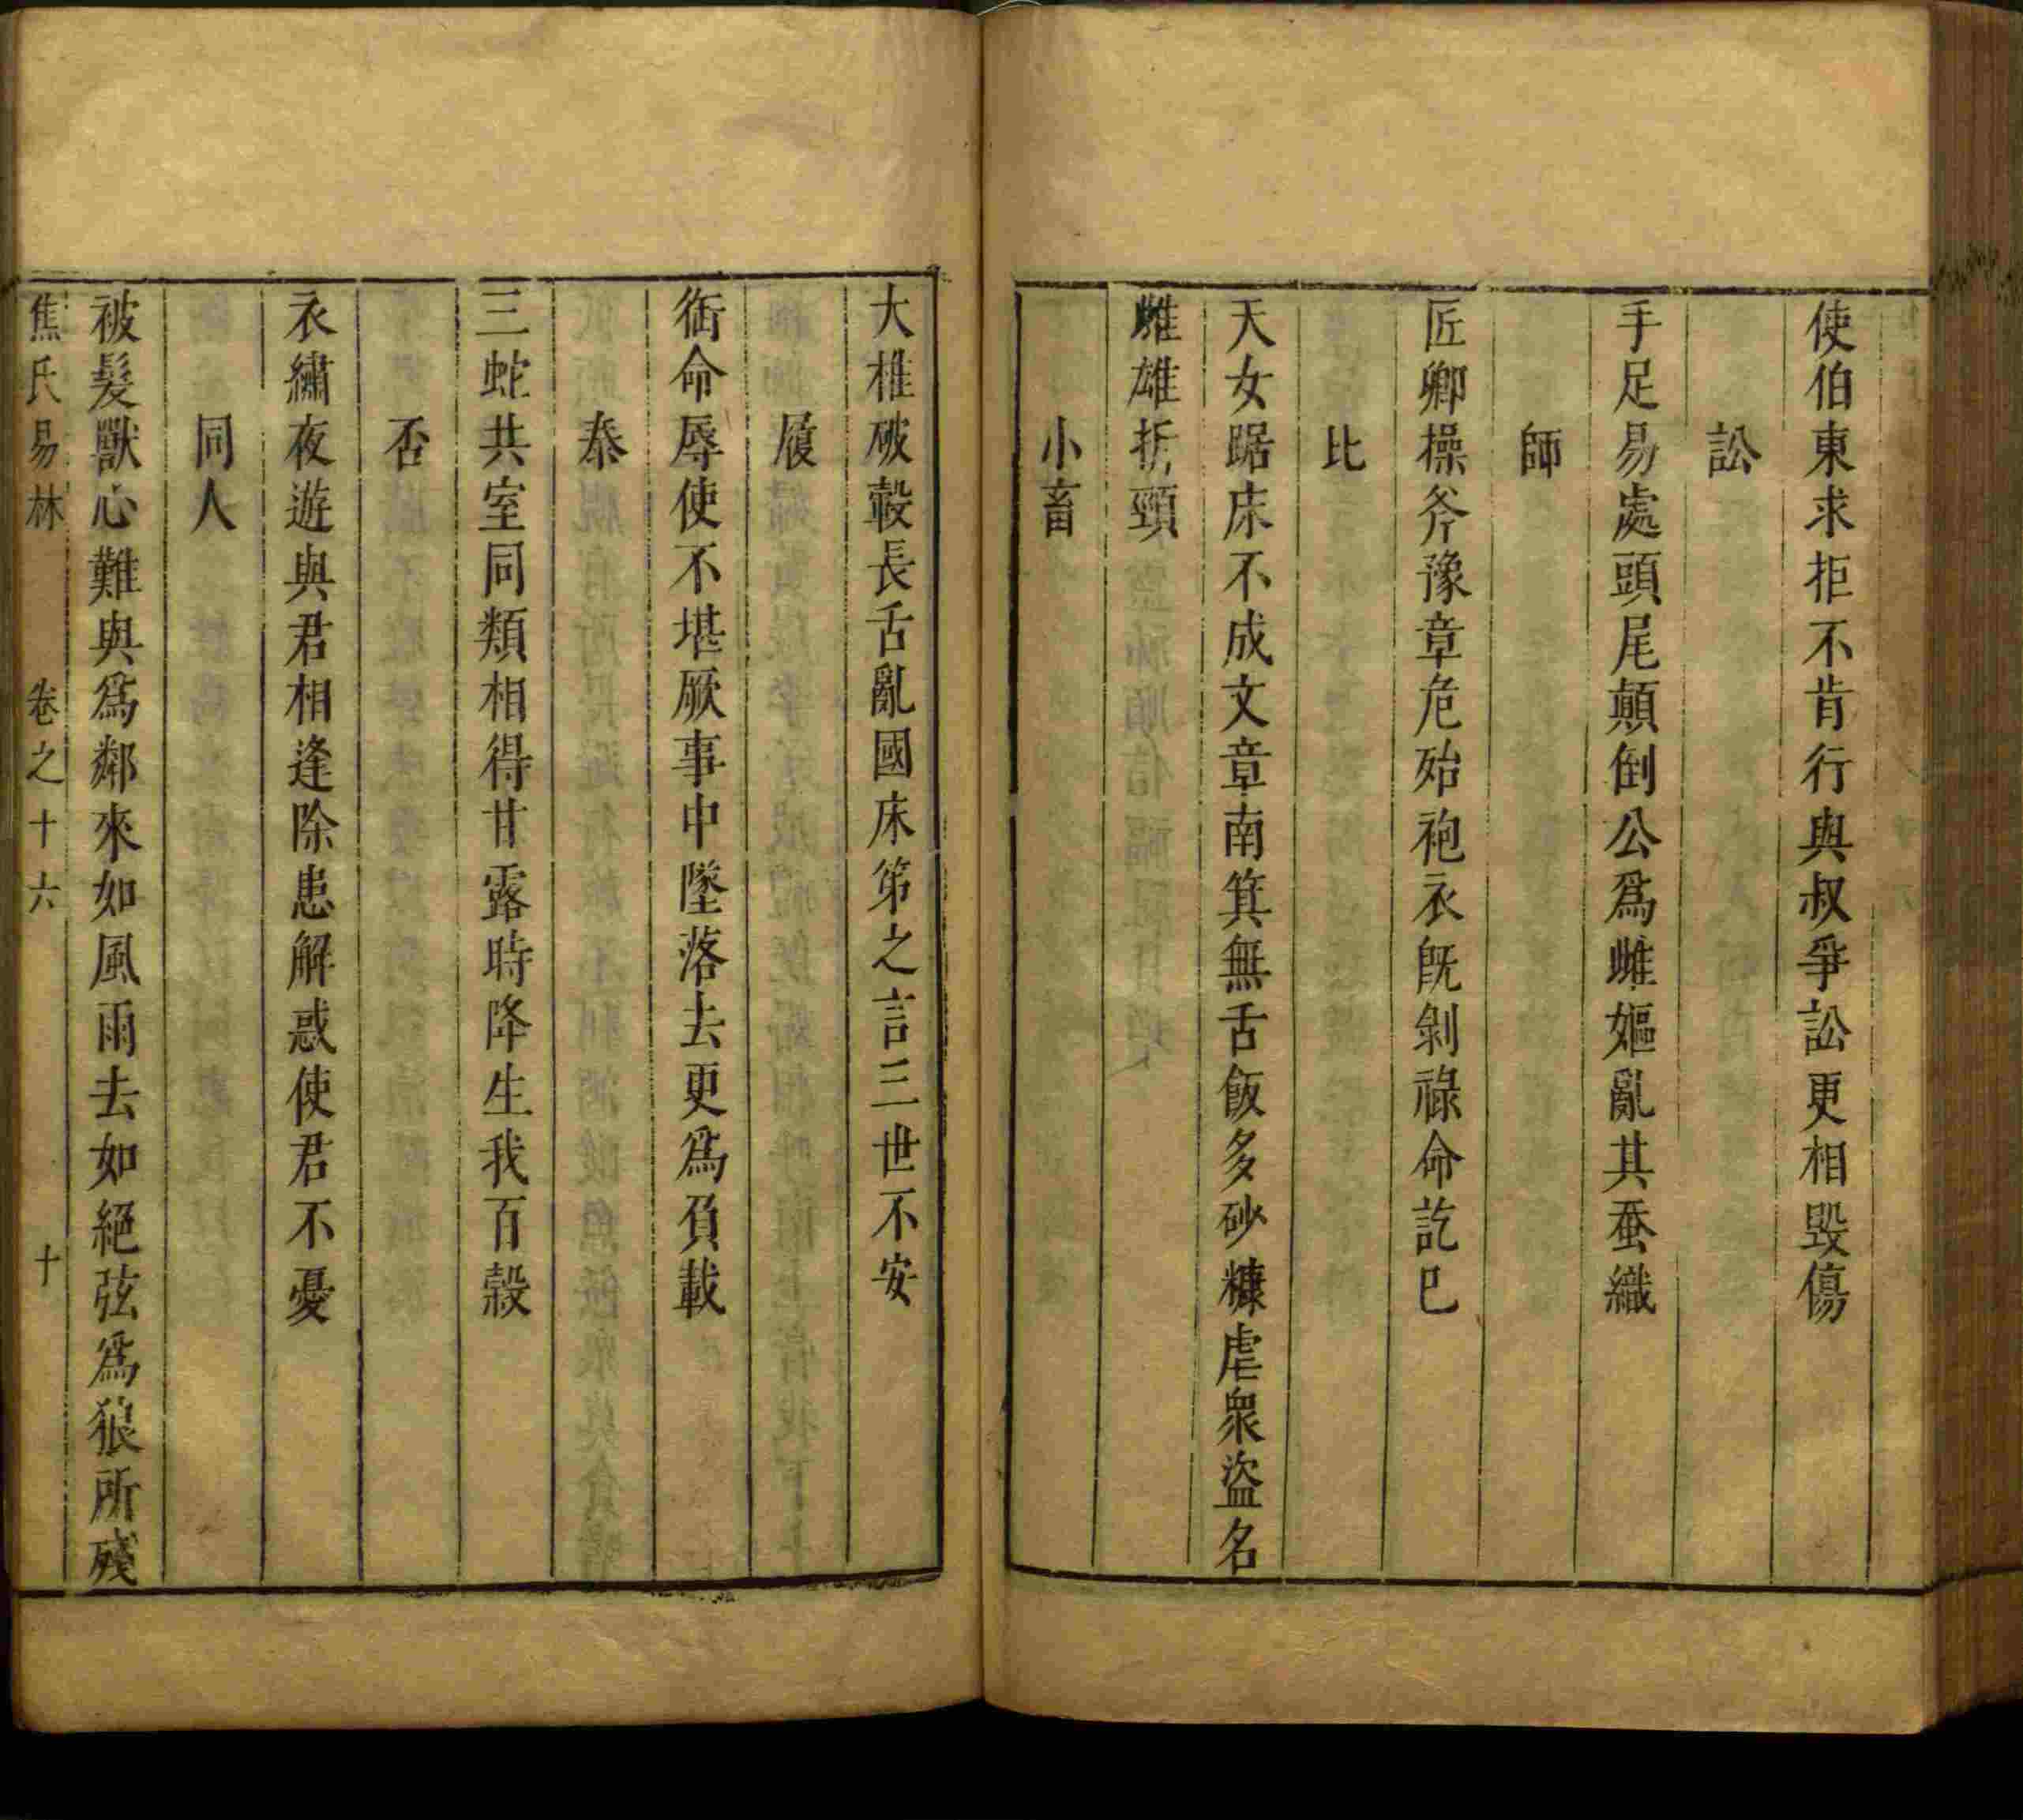 使伯東求拒不肯行與叔爭訟更相毀傷
訟
手足易處頭尾顛倒公爲雌嫗亂其蚕織
師
匠卿操斧豫章危殆袍衣旣剝祿命訖巳
比
天女踞床不成文章南箕無舌飯多砂糠虐衆盜名
雌雄折頸
小畜
大椎破轂長舌亂國床笫之言三世不安
履
銜命辱使不堪厥事中墜落去更爲負載
泰
三蛇共室同類相得甘露時降生我百穀
否
衣繡夜遊與君相逢除患解惑使君不憂
同人
被髮獸心難與爲鄰來如風雨去如絕弦爲狼所殘
焦氏易林 卷之十六 十